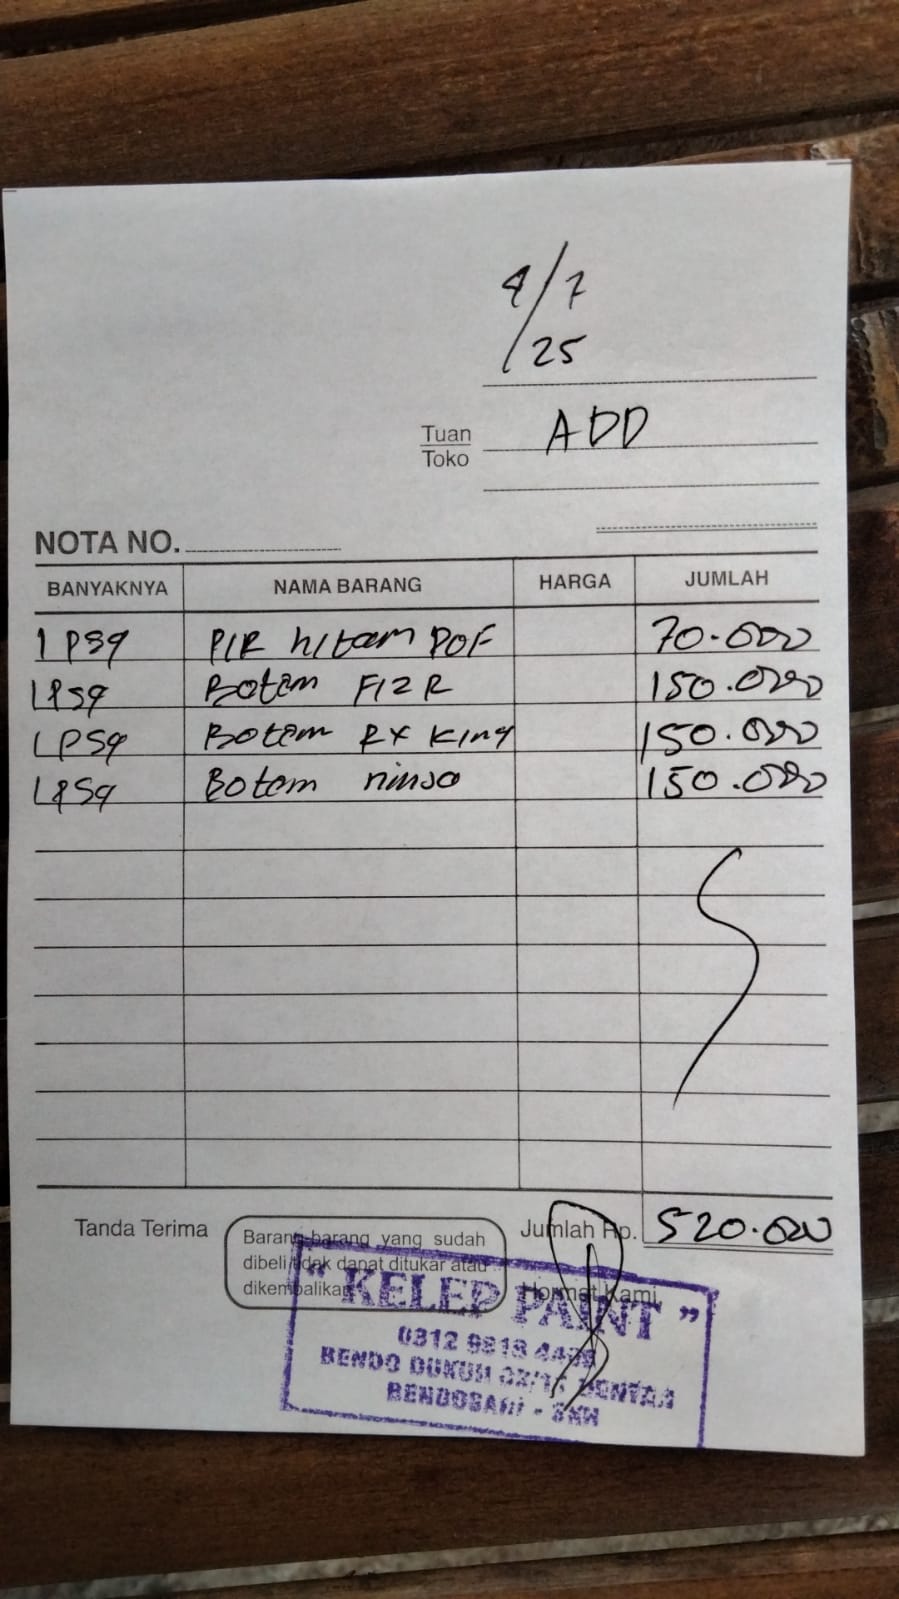 4/7
/25
Tuan
Toko
ADD
NOTA NO.
BANYAKNYA NAMA BARANG HARGA JUMLAH
1 psg PIR hitam POF 70.000
1 psg Botom F1ZR 150.000
1 psg Botom RX King 150.000
1 psg Botom 150.000
Tanda Terima
Barang-barang yang sudah
dibeli tidak dapat ditukar atau
dikembalikan
Jumlah Rp. 520.000
Hormat Kami
"KELEP PAINT"
BENDO DUKUH
BENDOSARI - SKH